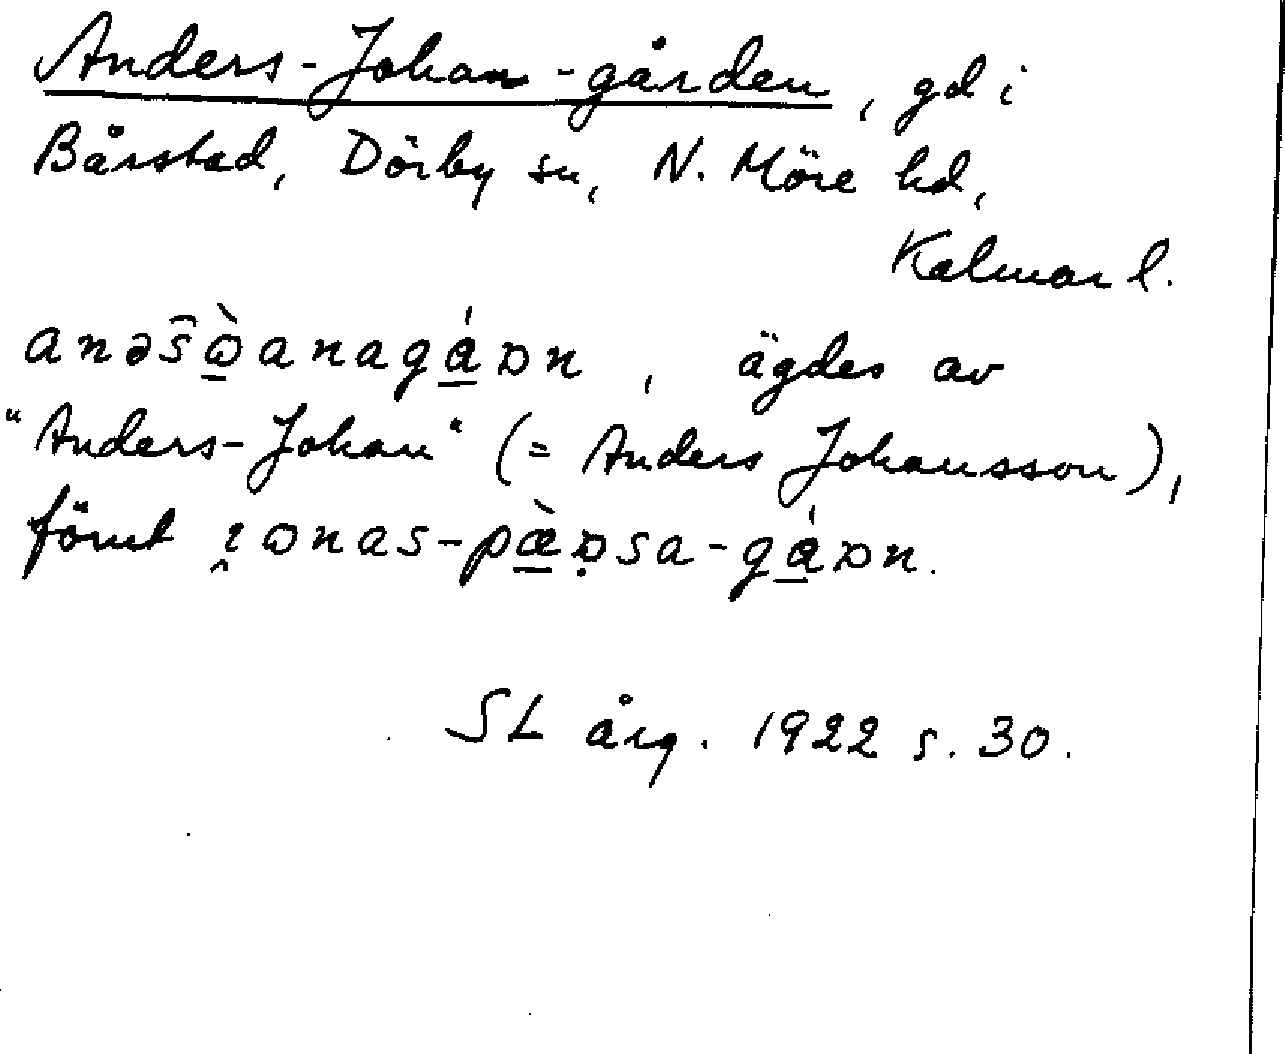 Anders-Johan-gården, gd i
Bårstad, Dörby sn, N. Möre hd,
Kalmar l.
anəs̑ɷ̠̀anagá̠ɒn, ägdes av
"Anders-Johan" (= Anders Johansson),
förut ı̯ɷnas-pæ̠̀ɒ̣sa-gá̠ɒn.
SL årg. 1922 s. 30.